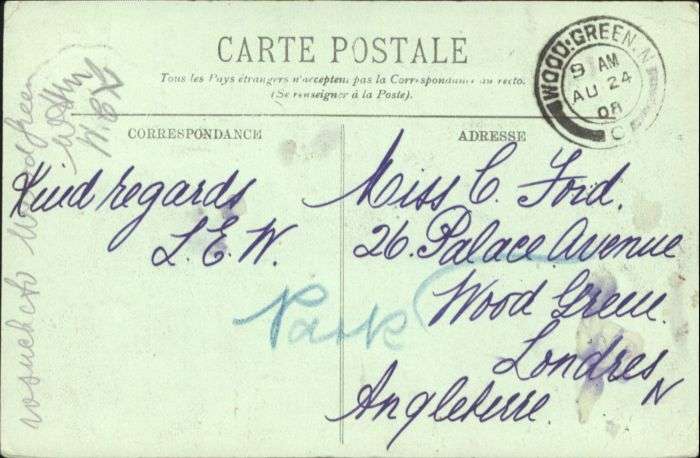 CARTE POSTALE
Tous les Pays étrangers n'acceptent pas la Correspondance au recto.
(Se renseigner à la Poste).
CORRESPONDANCE
ADRESSE
WOOD-GREEN. N
9 AM
AU 24
08
Kind regards
L. E. W.
Miss C. Ford.
26. Palace Avenue
Wood Green.
Londres
N
Angleterre.
Park
Woodgreen